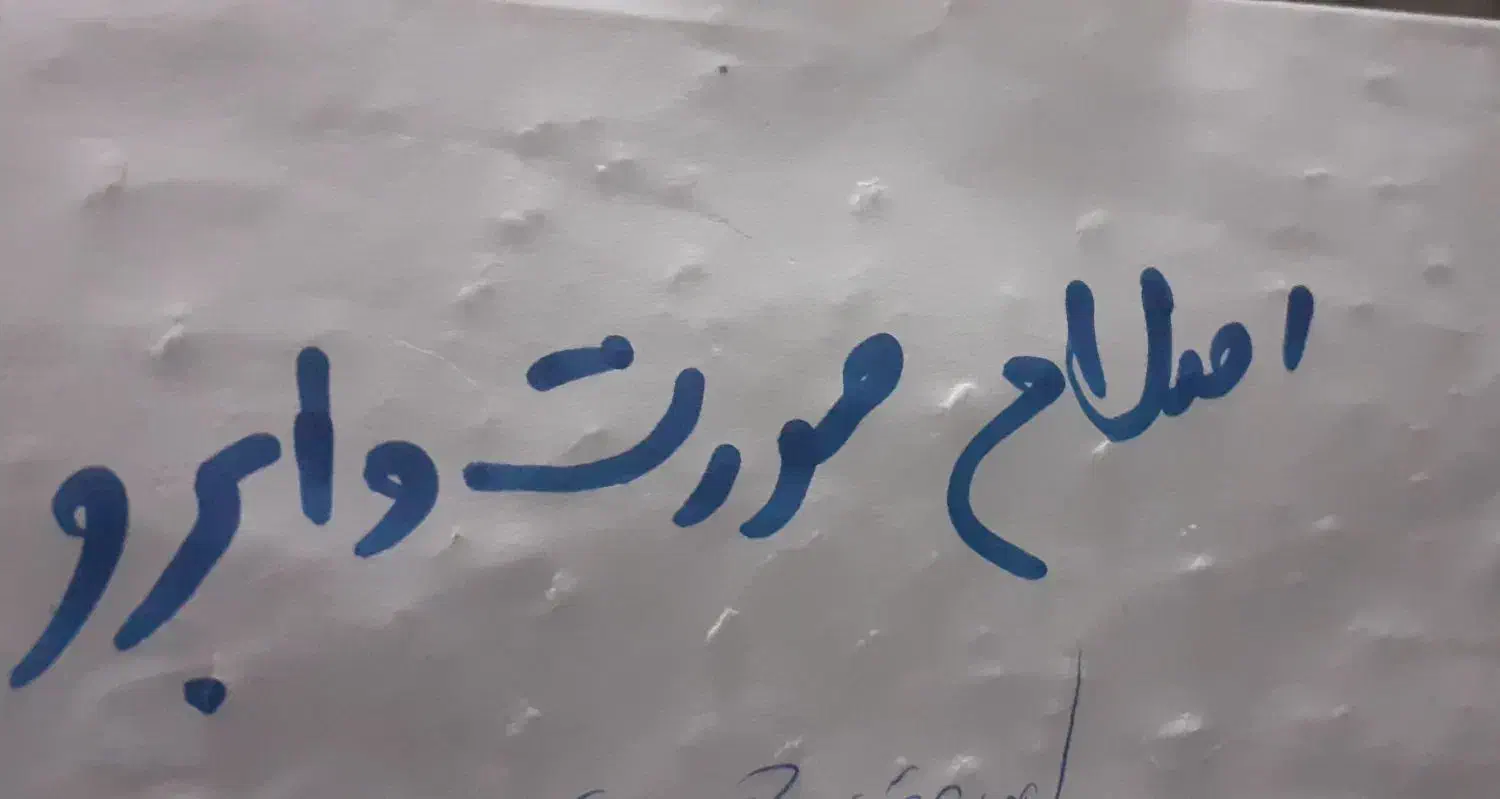 اصلاح صورت و ابرو